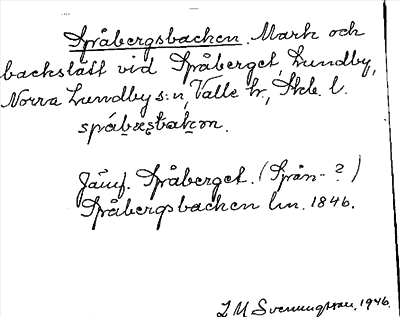 Spåbergsbacken. Mark och
backslätt vid Spåberget, Lundby,
Norra Lundby s:n, Valle hr, Skb. l.
spåbæsbakən.
Jämf. Spåberget. (Spån- ?)
Spåbergsbacken lm. 1846.
I M Svenungsson, 1946.